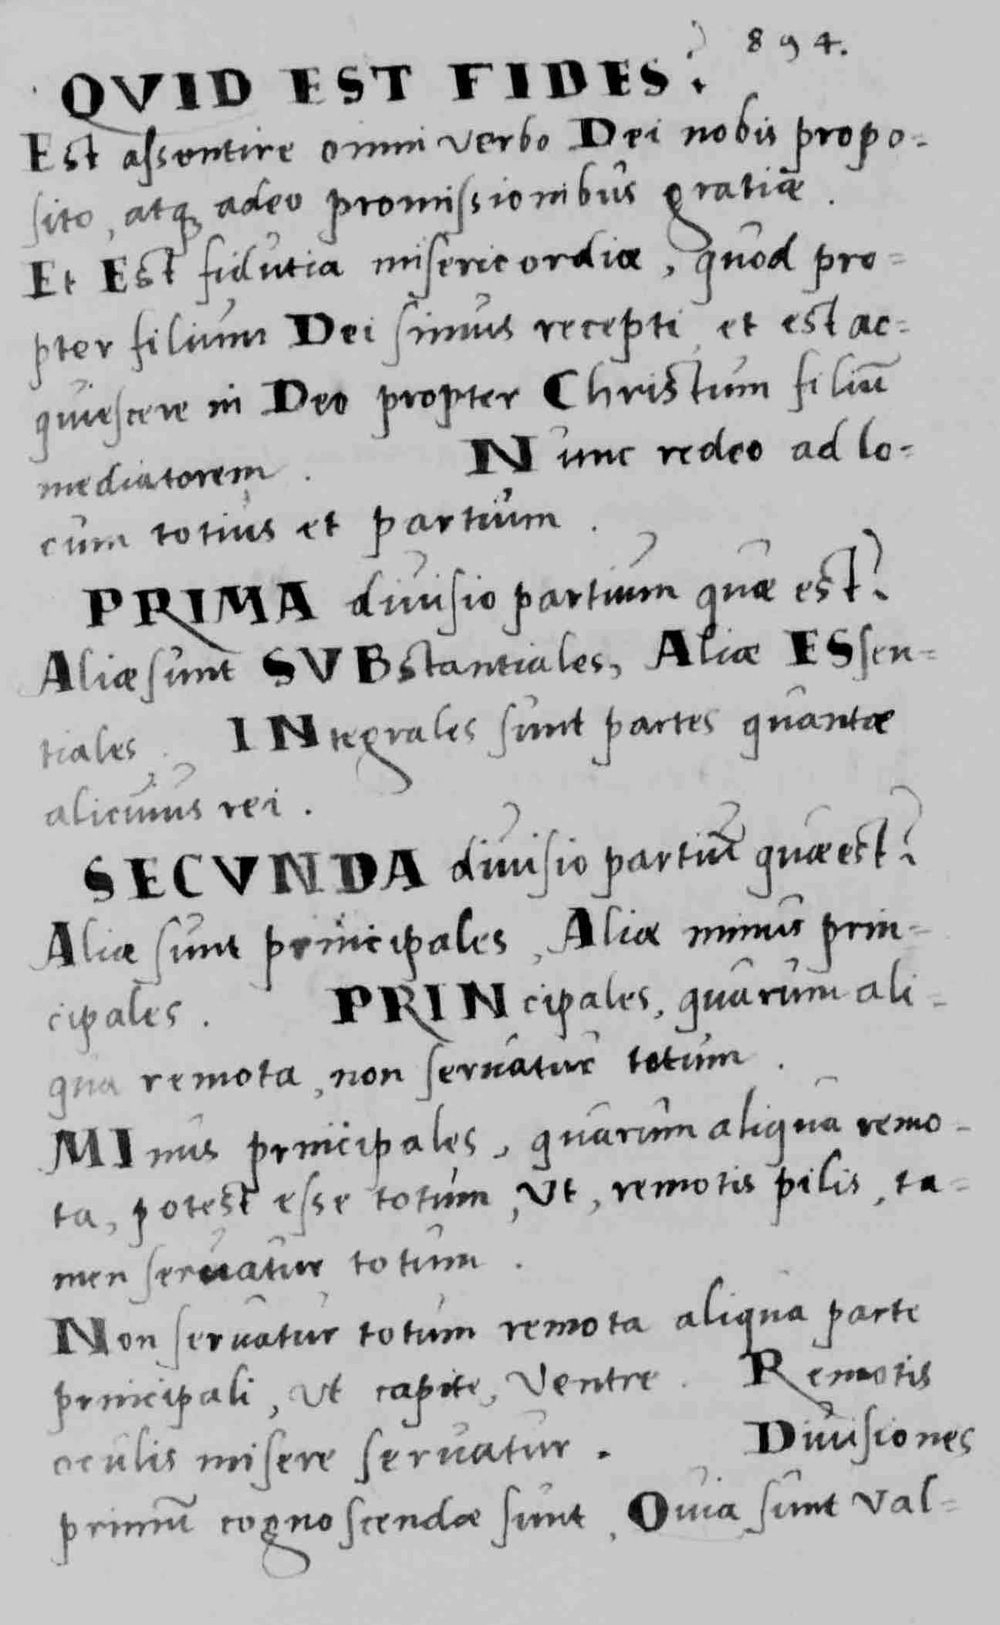 894.
QVID EST FIDES?
Est assentire omni verbo Dei nobis propo=
sito, atq; adeo promissionibus gratiæ.
Et Est fidutia misericordiæ, quod pro=
pter filium Dei simus recepti, et est ac=
quiescere in Deo propter Christum filiū
mediatorem. Nunc redeo ad lo=
cum totius et partium.
PRIMA diuisio partium quæ est?
Aliæ sunt SVBstantiales, Aliæ ESsen=
tiales. INtegrales sunt partes quantæ
alicuius rei.
SECVNDA diuisio partiū quæ est?
Aliæ sunt principales, Aliæ minus prin=
cipales. PRINcipales, quarum ali=
qua remota, non seruatur totum.
MInus principales, quarum aliqua remo=
ta, potest esse totum, Vt, remotis pilis, ta=
men seruatur totum.
Non seruatur totum remota aliqua parte
principali, Vt capite, Ventre. Remotis
oculis misere seruatur. Diuisiones
primū cognoscendæ sunt, Quia sunt val=